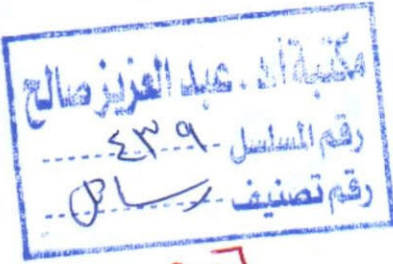 مكتبة أ.د. عبد العزيز صالح
رقم المسلسل ٤٣٩
رقم تصنيف رسائل